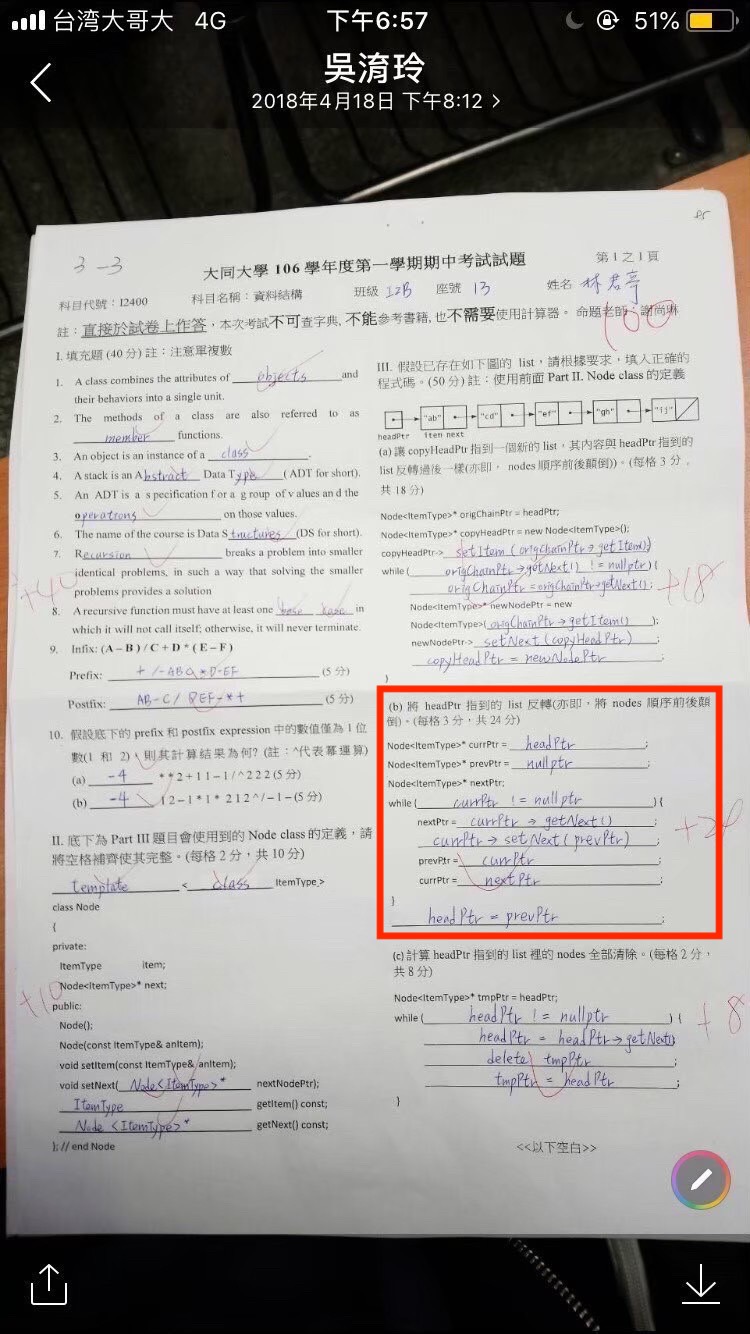 台湾大哥大 4G 下午6:57 51%
吳淯玲
2018年4月18日 下午8:12 >
85
3-3
大同大學 106 學年度第一學期期中考試試題 第1之1頁
科目代號:I2400 科目名稱:資料結構 班級 I2B 座號 13 姓名 林君亭
註:直接於試卷上作答,本次考試不可查字典, 不能參考書籍, 也不需要使用計算器。 命題老師:謝尚琳
100
I. 填充題 (40 分) 註:注意單複數
1. A class combines the attributes of objects and
their behaviors into a single unit.
2. The methods of a class are also referred to as
member functions.
3. An object is an instance of a class.
4. A stack is an Abstract Data Type (ADT for short).
5. An ADT is a specification for a group of values and the
operations on those values.
6. The name of the course is Data Structures (DS for short).
7. Recursion breaks a problem into smaller
identical problems, in such a way that solving the smaller
problems provides a solution
+40
8. A recursive function must have at least one base case in
which it will not call itself; otherwise, it will never terminate.
9. Infix: (A – B) / C + D * (E – F)
Prefix: + /-ABC*D-EF (5 分)
Postfix: AB-C/DEF-*+ (5 分)
10. 假設底下的 prefix 和 postfix expression 中的數值僅為 1 位
數(1 和 2),則其計算結果為何? (註:^代表幕運算)
(a) -4 **2+11-1/^222 (5 分)
(b) -4 12-1*1*212^/-1- (5 分)
II. 底下為 Part III 題目會使用到的 Node class 的定義,請
將空格補齊使其完整。(每格 2 分,共 10 分)
template < class ItemType>
class Node
{
private:
ItemType item;
Node<ItemType>* next;
+10
public:
Node();
Node(const ItemType& anItem);
void setItem(const ItemType& anItem);
void setNext( Node<ItemType>* nextNodePtr);
ItemType getItem() const;
Node <ItemType>* getNext() const;
}; // end Node
III. 假設已存在如下圖的 list,請根據要求,填入正確的
程式碼。(50 分) 註:使用前面 Part II. Node class 的定義
"ab" "cd" "ef" "gh" "ij"
headPtr item next
(a) 讓 copyHeadPtr 指到一個新的 list,其內容與 headPtr 指到的
list 反轉過後一樣(亦即, nodes 順序前後顛倒)。(每格 3 分,
共 18 分)
Node<ItemType>* origChainPtr = headPtr;
Node<ItemType>* copyHeadPtr = new Node<ItemType>();
copyHeadPtr-> setItem (origChainPtr→getItem())
while ( origChainPtr→getNext() != nullptr){
origChainPtr = origChainPtr→getNext();
+18
Node<ItemType>* newNodePtr = new
Node<ItemType>(origChainPtr→getItem() );
newNodePtr-> setNext (copyHeadPtr) ;
copyHeadPtr = newNodePtr ;
}
(b) 將 headPtr 指到的 list 反轉(亦即,將 nodes 順序前後顛
倒)。(每格 3 分,共 24 分)
Node<ItemType>* currPtr = headPtr ;
Node<ItemType>* prevPtr = nullptr ;
Node<ItemType>* nextPtr;
while ( currPtr != nullptr ){
nextPtr = currPtr → getNext() ;
currPtr → setNext ( prevPtr) ;
+24
prevPtr = currPtr ;
currPtr = nextPtr ;
}
headPtr = prevPtr ;
(c) 計算 headPtr 指到的 list 裡的 nodes 全部清除。(每格 2 分,
共 8 分)
Node<ItemType>* tmpPtr = headPtr;
while ( headPtr != nullptr ) {
+8
headPtr = headPtr→getNext()
delete tmpPtr ;
tmpPtr = headPtr ;
}
<<以下空白>>